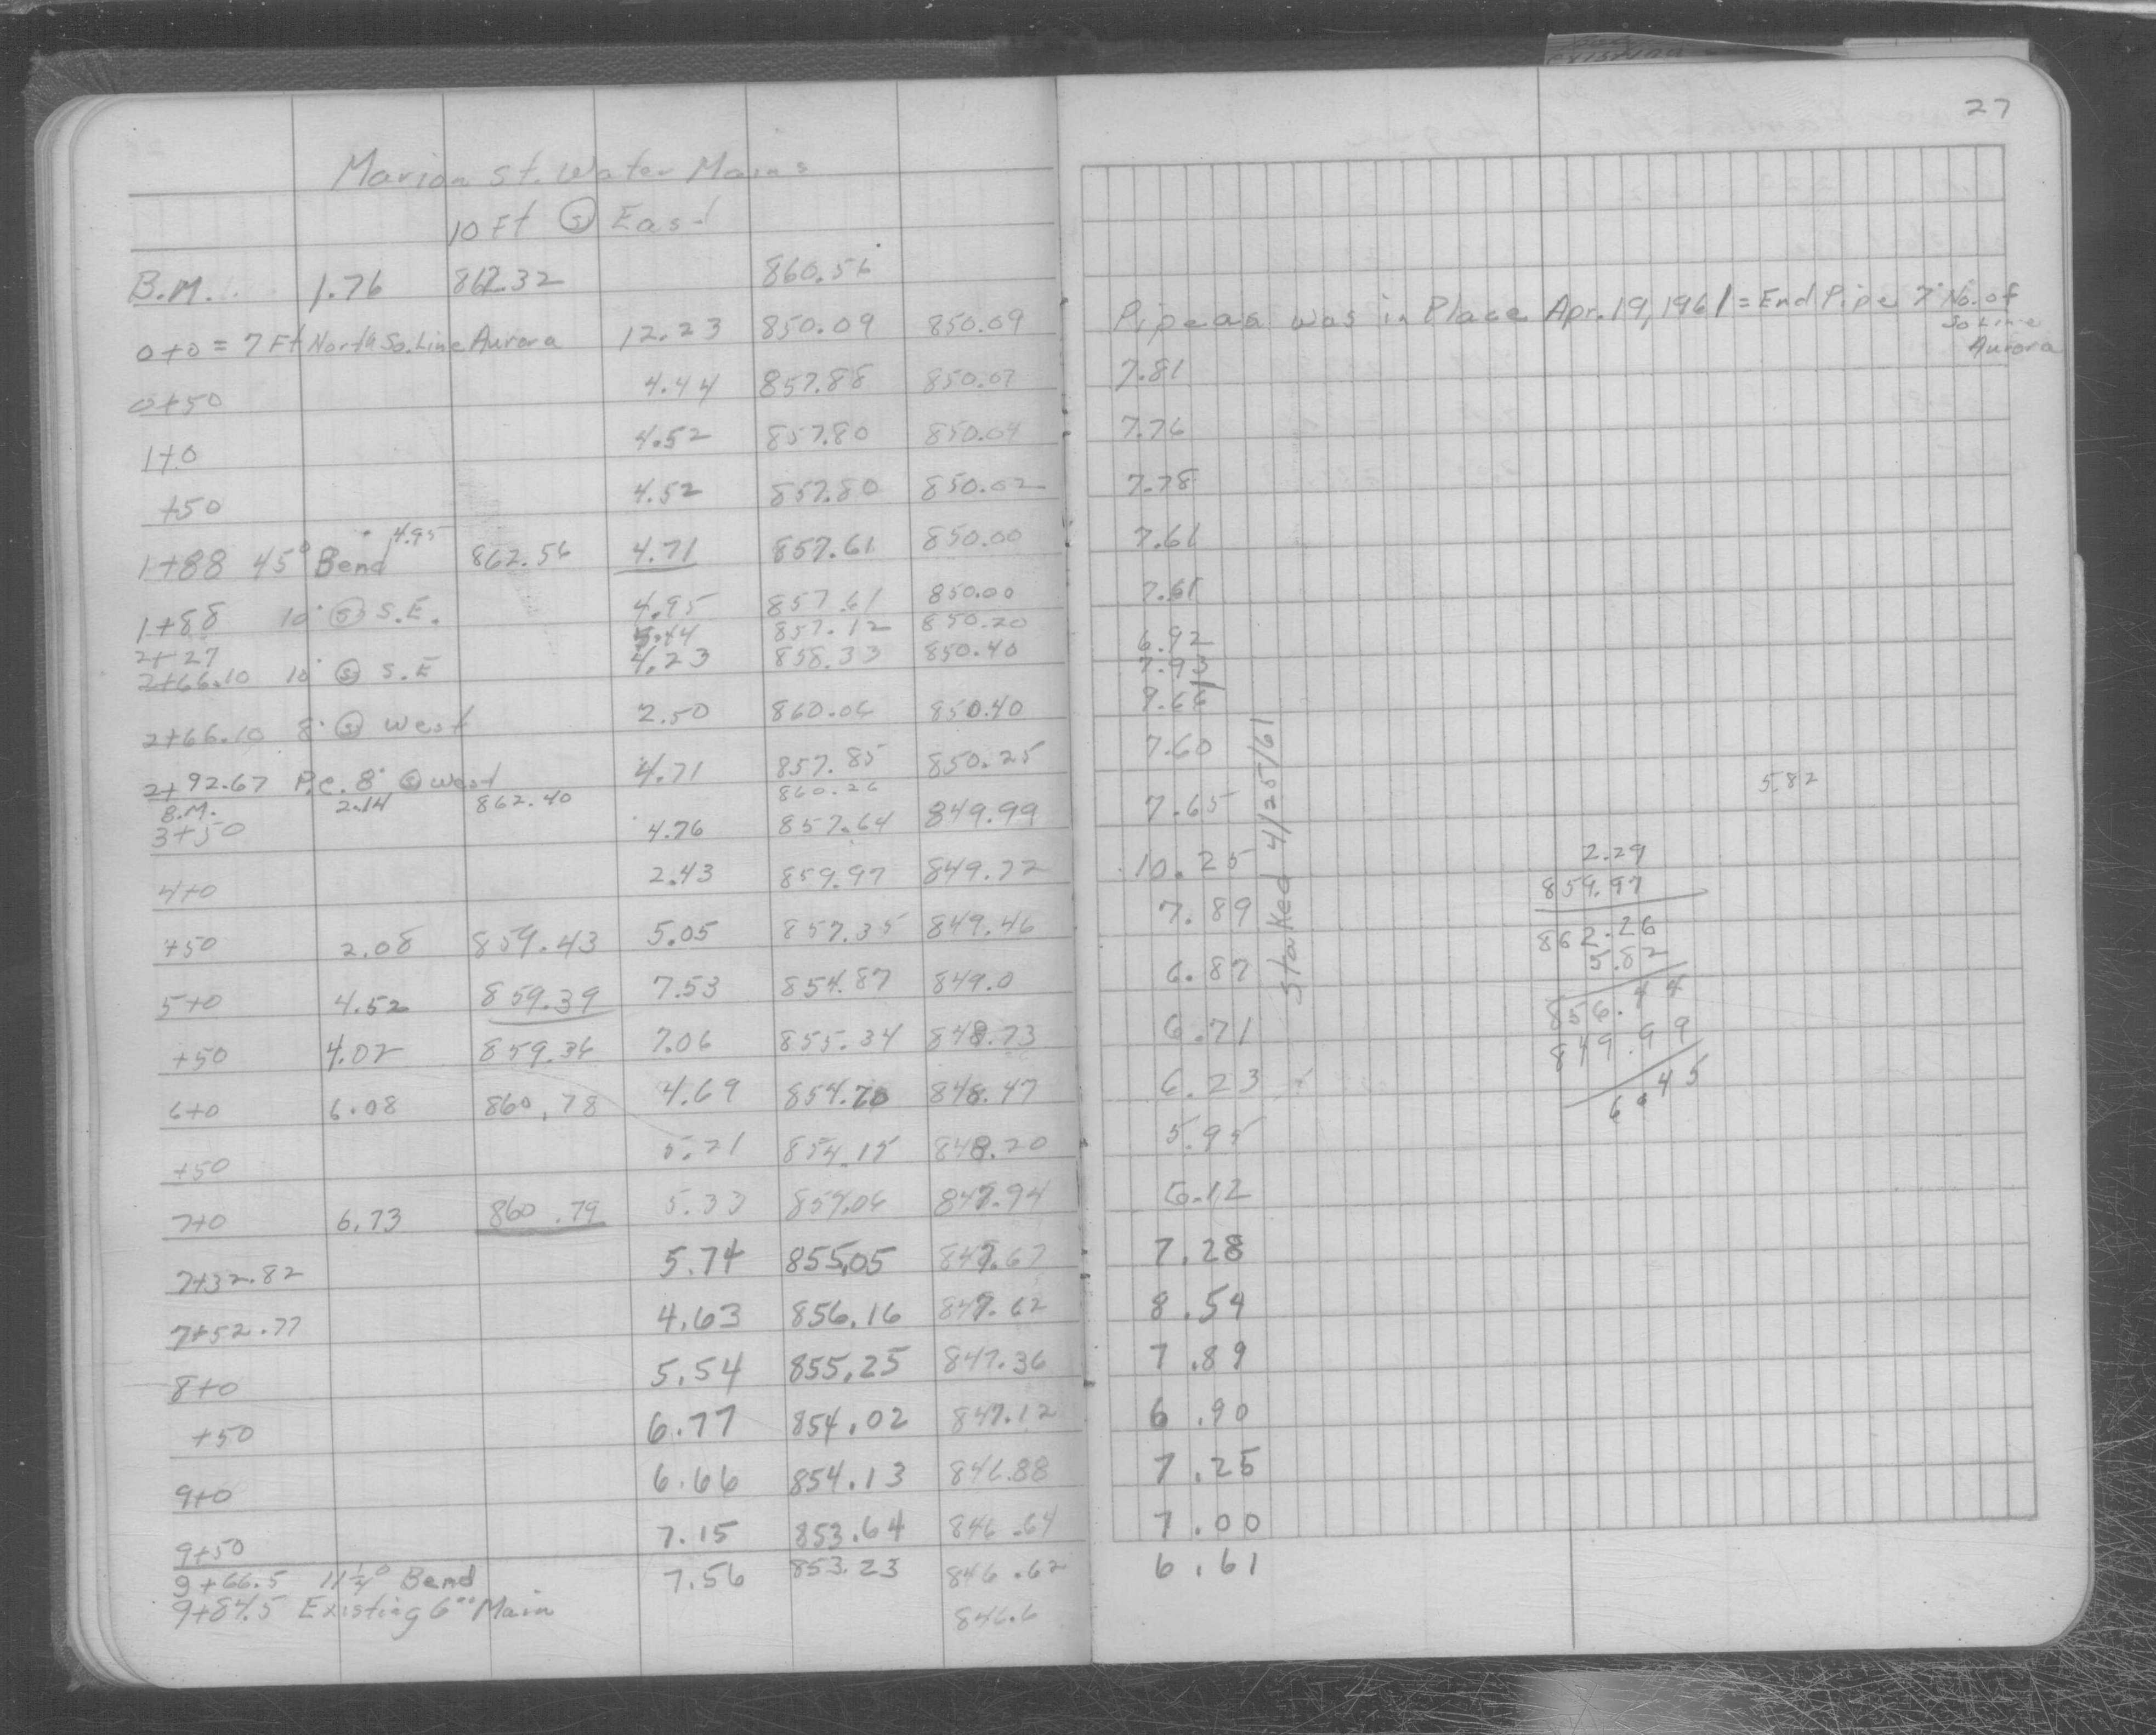 27
Marion St. Water Mains
10 Ft Ⓢ East
B.M. 1.76 862.32 860.56
0+0 = 7 Ft North So. Line Aurora 12.23 850.09 850.09 Pipe as was in Place Apr. 19, 1961 = End Pipe 7' No. of
So Line
Aurora
0+50 4.44 857.88 850.07 7.81
1+0 4.52 857.80 850.04 7.76
+50 4.52 857.80 850.02 7.78
1+88 45° Bend 4.95 862.56 4.71 857.61 850.00 7.61
1+88 10' Ⓢ S.E. 4.95 857.61 850.00 7.61
2+27 5.44 857.12 850.20 6.92
2+66.10 10' Ⓢ S.E 4.23 858.33 850.40 7.93
2+66.10 8' Ⓢ West 2.50 860.06 850.40 9.66
2+92.67 P.C. 8' Ⓢ West 4.71 857.85 850.25 7.60
B.M. 2.14 862.40 860.26
3+50 4.76 857.64 849.99 7.65
4+0 2.43 859.97 849.72 10.25
+50 2.08 859.43 5.05 857.35 849.46 7.89
5+0 4.52 859.39 7.53 854.87 849.0 6.87
+50 4.02 859.36 7.06 855.34 848.73 6.71
6+0 6.08 860.78 4.69 854.70 848.47 6.23
+50 5.21 854.15 848.20 5.95
7+0 6.73 860.79 5.33 854.06 847.94 6.12
7+32.82 5.74 855.05 847.67 7.28
7+52.77 4.63 856.16 847.62 8.54
8+0 5.54 855.25 847.36 7.89
+50 6.77 854.02 847.12 6.90
9+0 6.66 854.13 846.88 7.25
9+50 7.15 853.64 846.64 7.00
9+66.5 11¼° Bend 7.56 853.23 846.62 6.61
9+84.5 Existing 6" Main 846.6
Staked 4/25/61
5.82
2.29
859.97
862.26
5.82
856.44
849.99
6.45